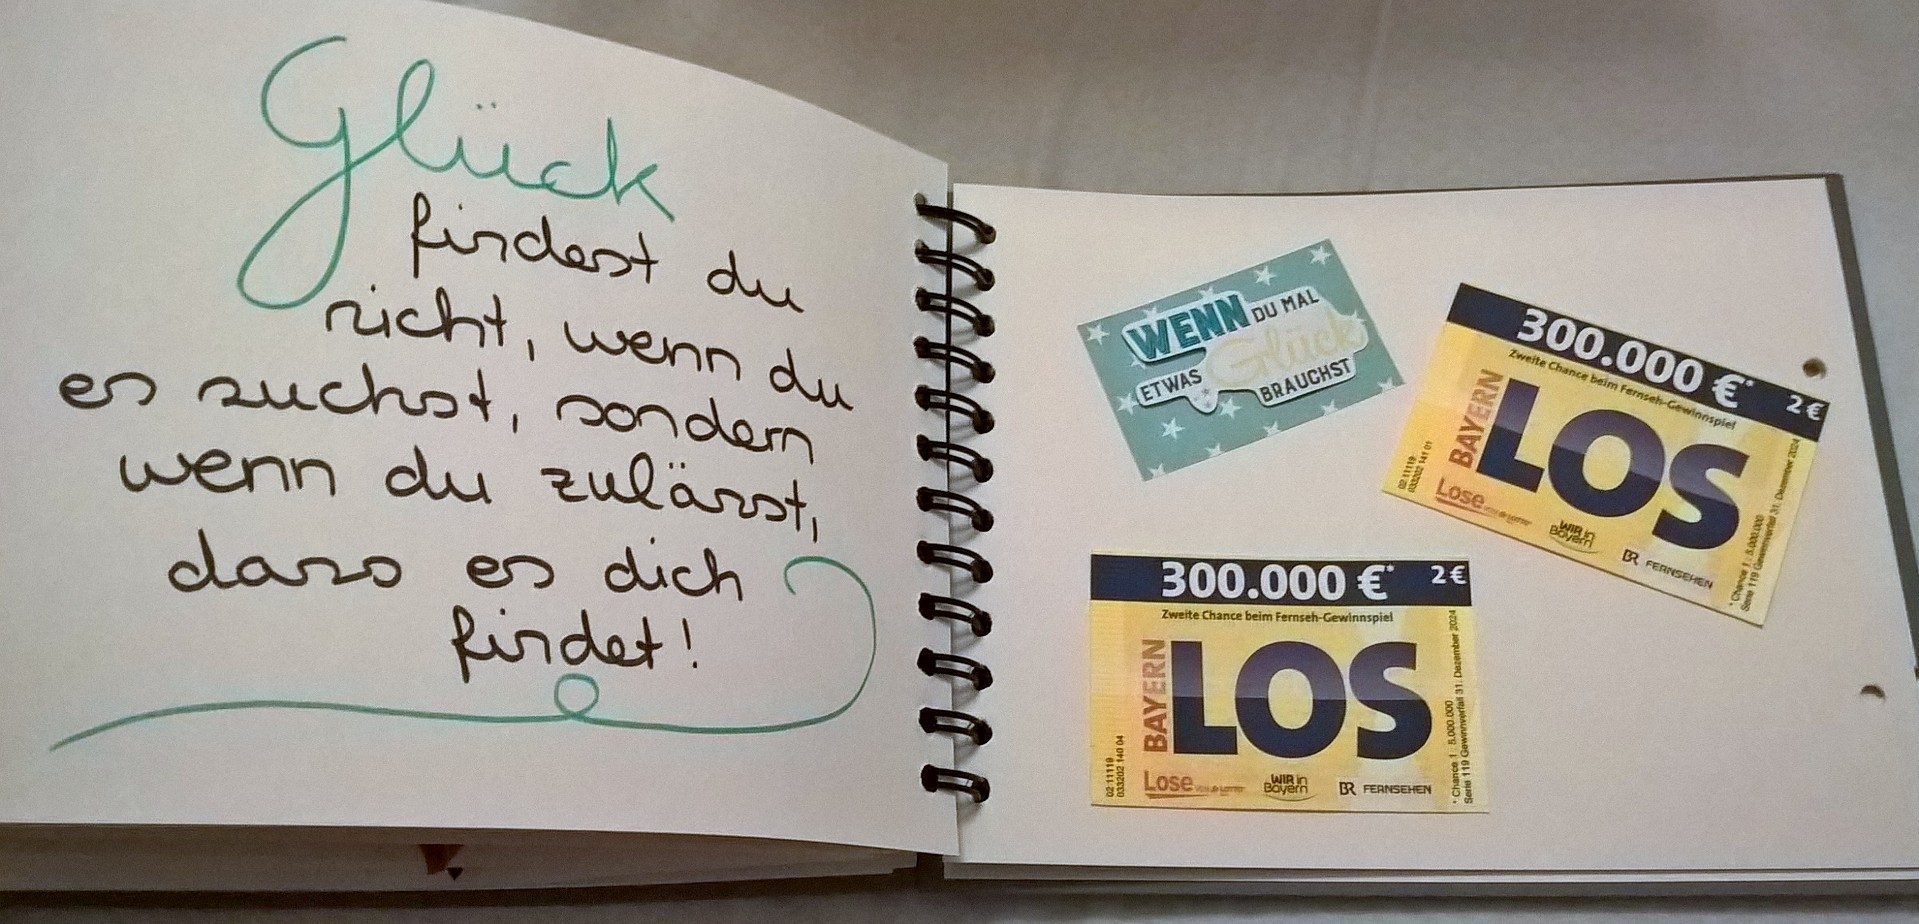 Glück
findest du
nicht, wenn du
es suchst, sondern
wenn du zulässt,
dass es dich
findet!
WENN DU MAL
ETWAS Glück
BRAUCHST
300.000 €*
2 €
Zweite Chance beim Fernseh-Gewinnspiel
BAYERN
LOS
02 11119
033202 141 01
Lose
WIR in
Bayern
BR FERNSEHEN
* Chance 1 : 5.000.000
Serie 119 Gewinnverfall 31. Dezember 2024
300.000 €*
2 €
Zweite Chance beim Fernseh-Gewinnspiel
BAYERN
LOS
02 11119
033202 140 04
Lose
WIR in
Bayern
BR FERNSEHEN
* Chance 1 : 5.000.000
Serie 119 Gewinnverfall 31. Dezember 2024